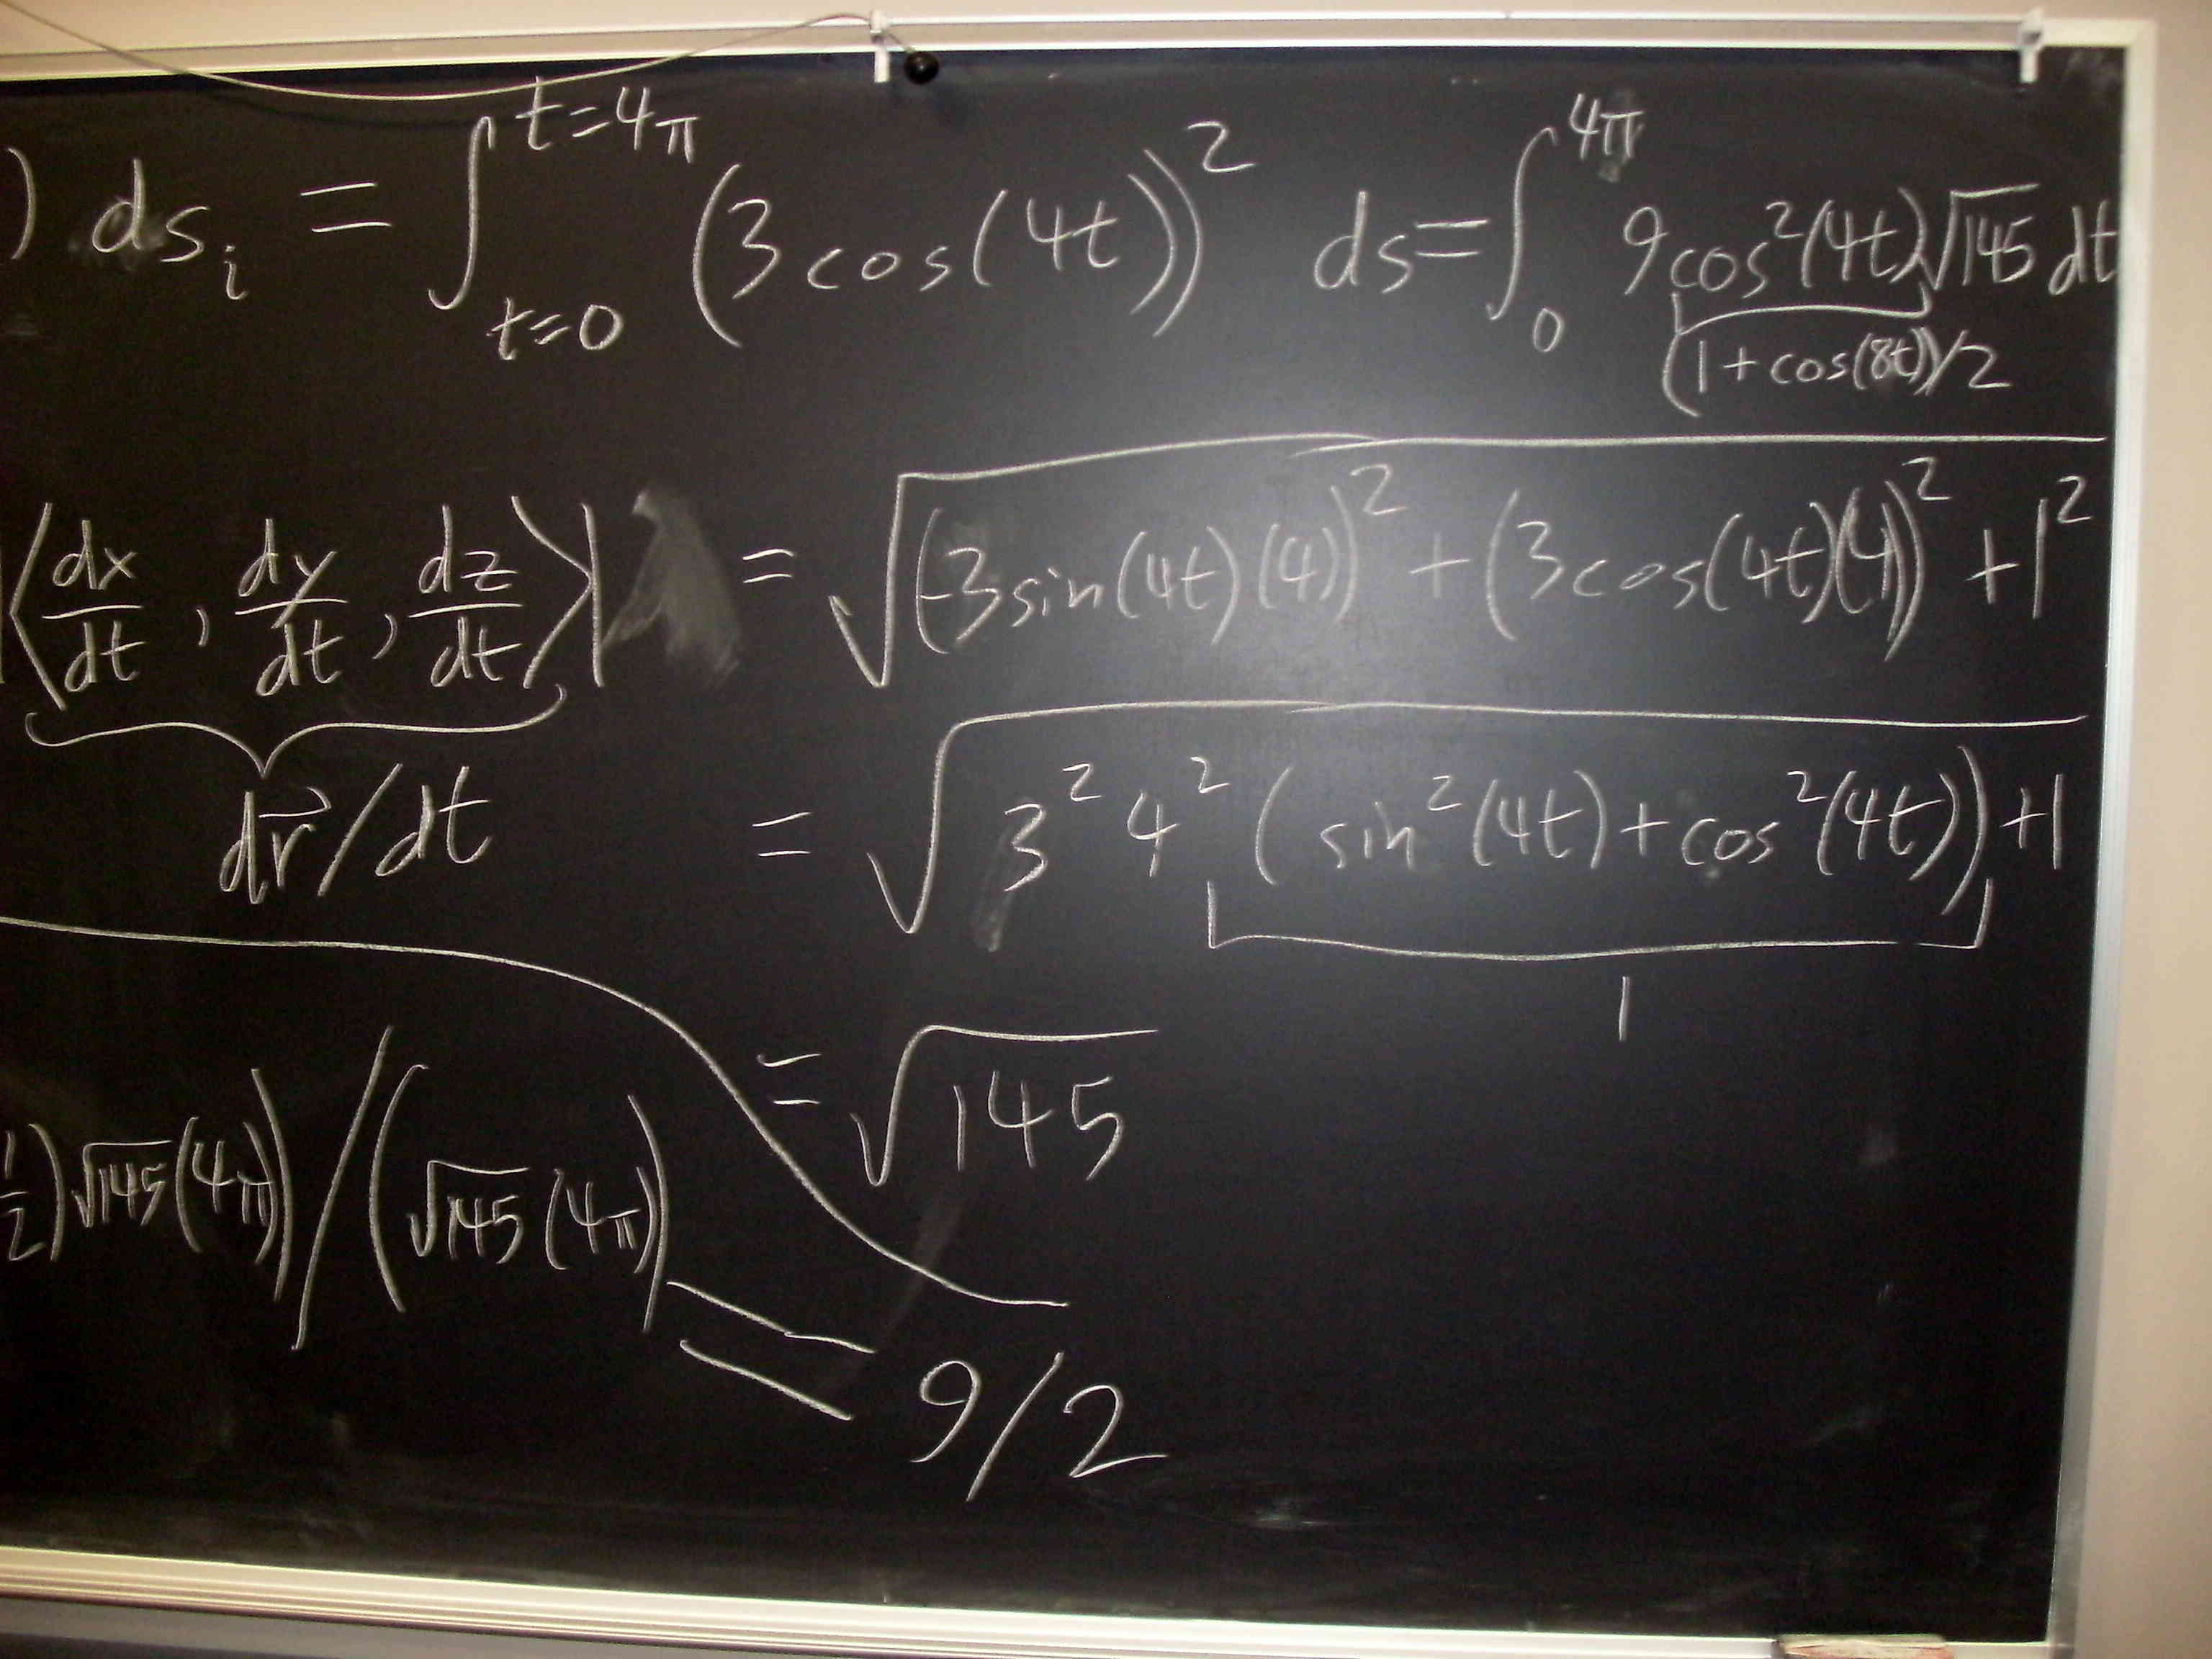 ) ds_i = ∫_{t=0}^{t=4π} (3cos(4t))² ds = ∫_0^{4π} 9cos²(4t)√145 dt
(1+cos(8t))/2
|⟨dx/dt, dy/dt, dz/dt⟩| = √((-3sin(4t)(4))² + (3cos(4t)(4))² + 1²)
dr⃗/dt = √(3²4²(sin²(4t)+cos²(4t))+1)
1
= √145
1/2)√145(4π))/(√145(4π))
= 9/2